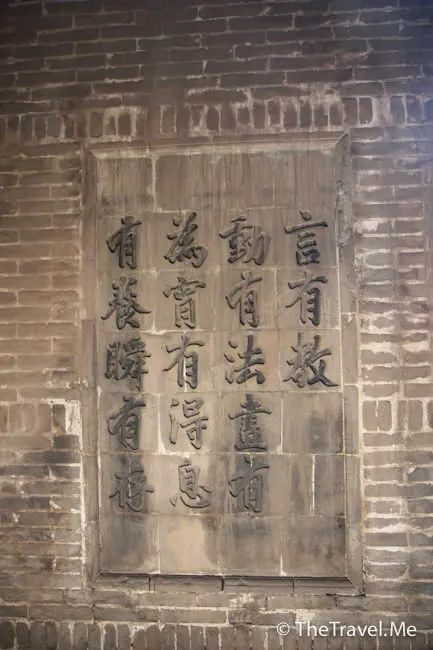 言有教
動有法晝有
為宵有得息
有養瞬有存
© TheTravel.Me